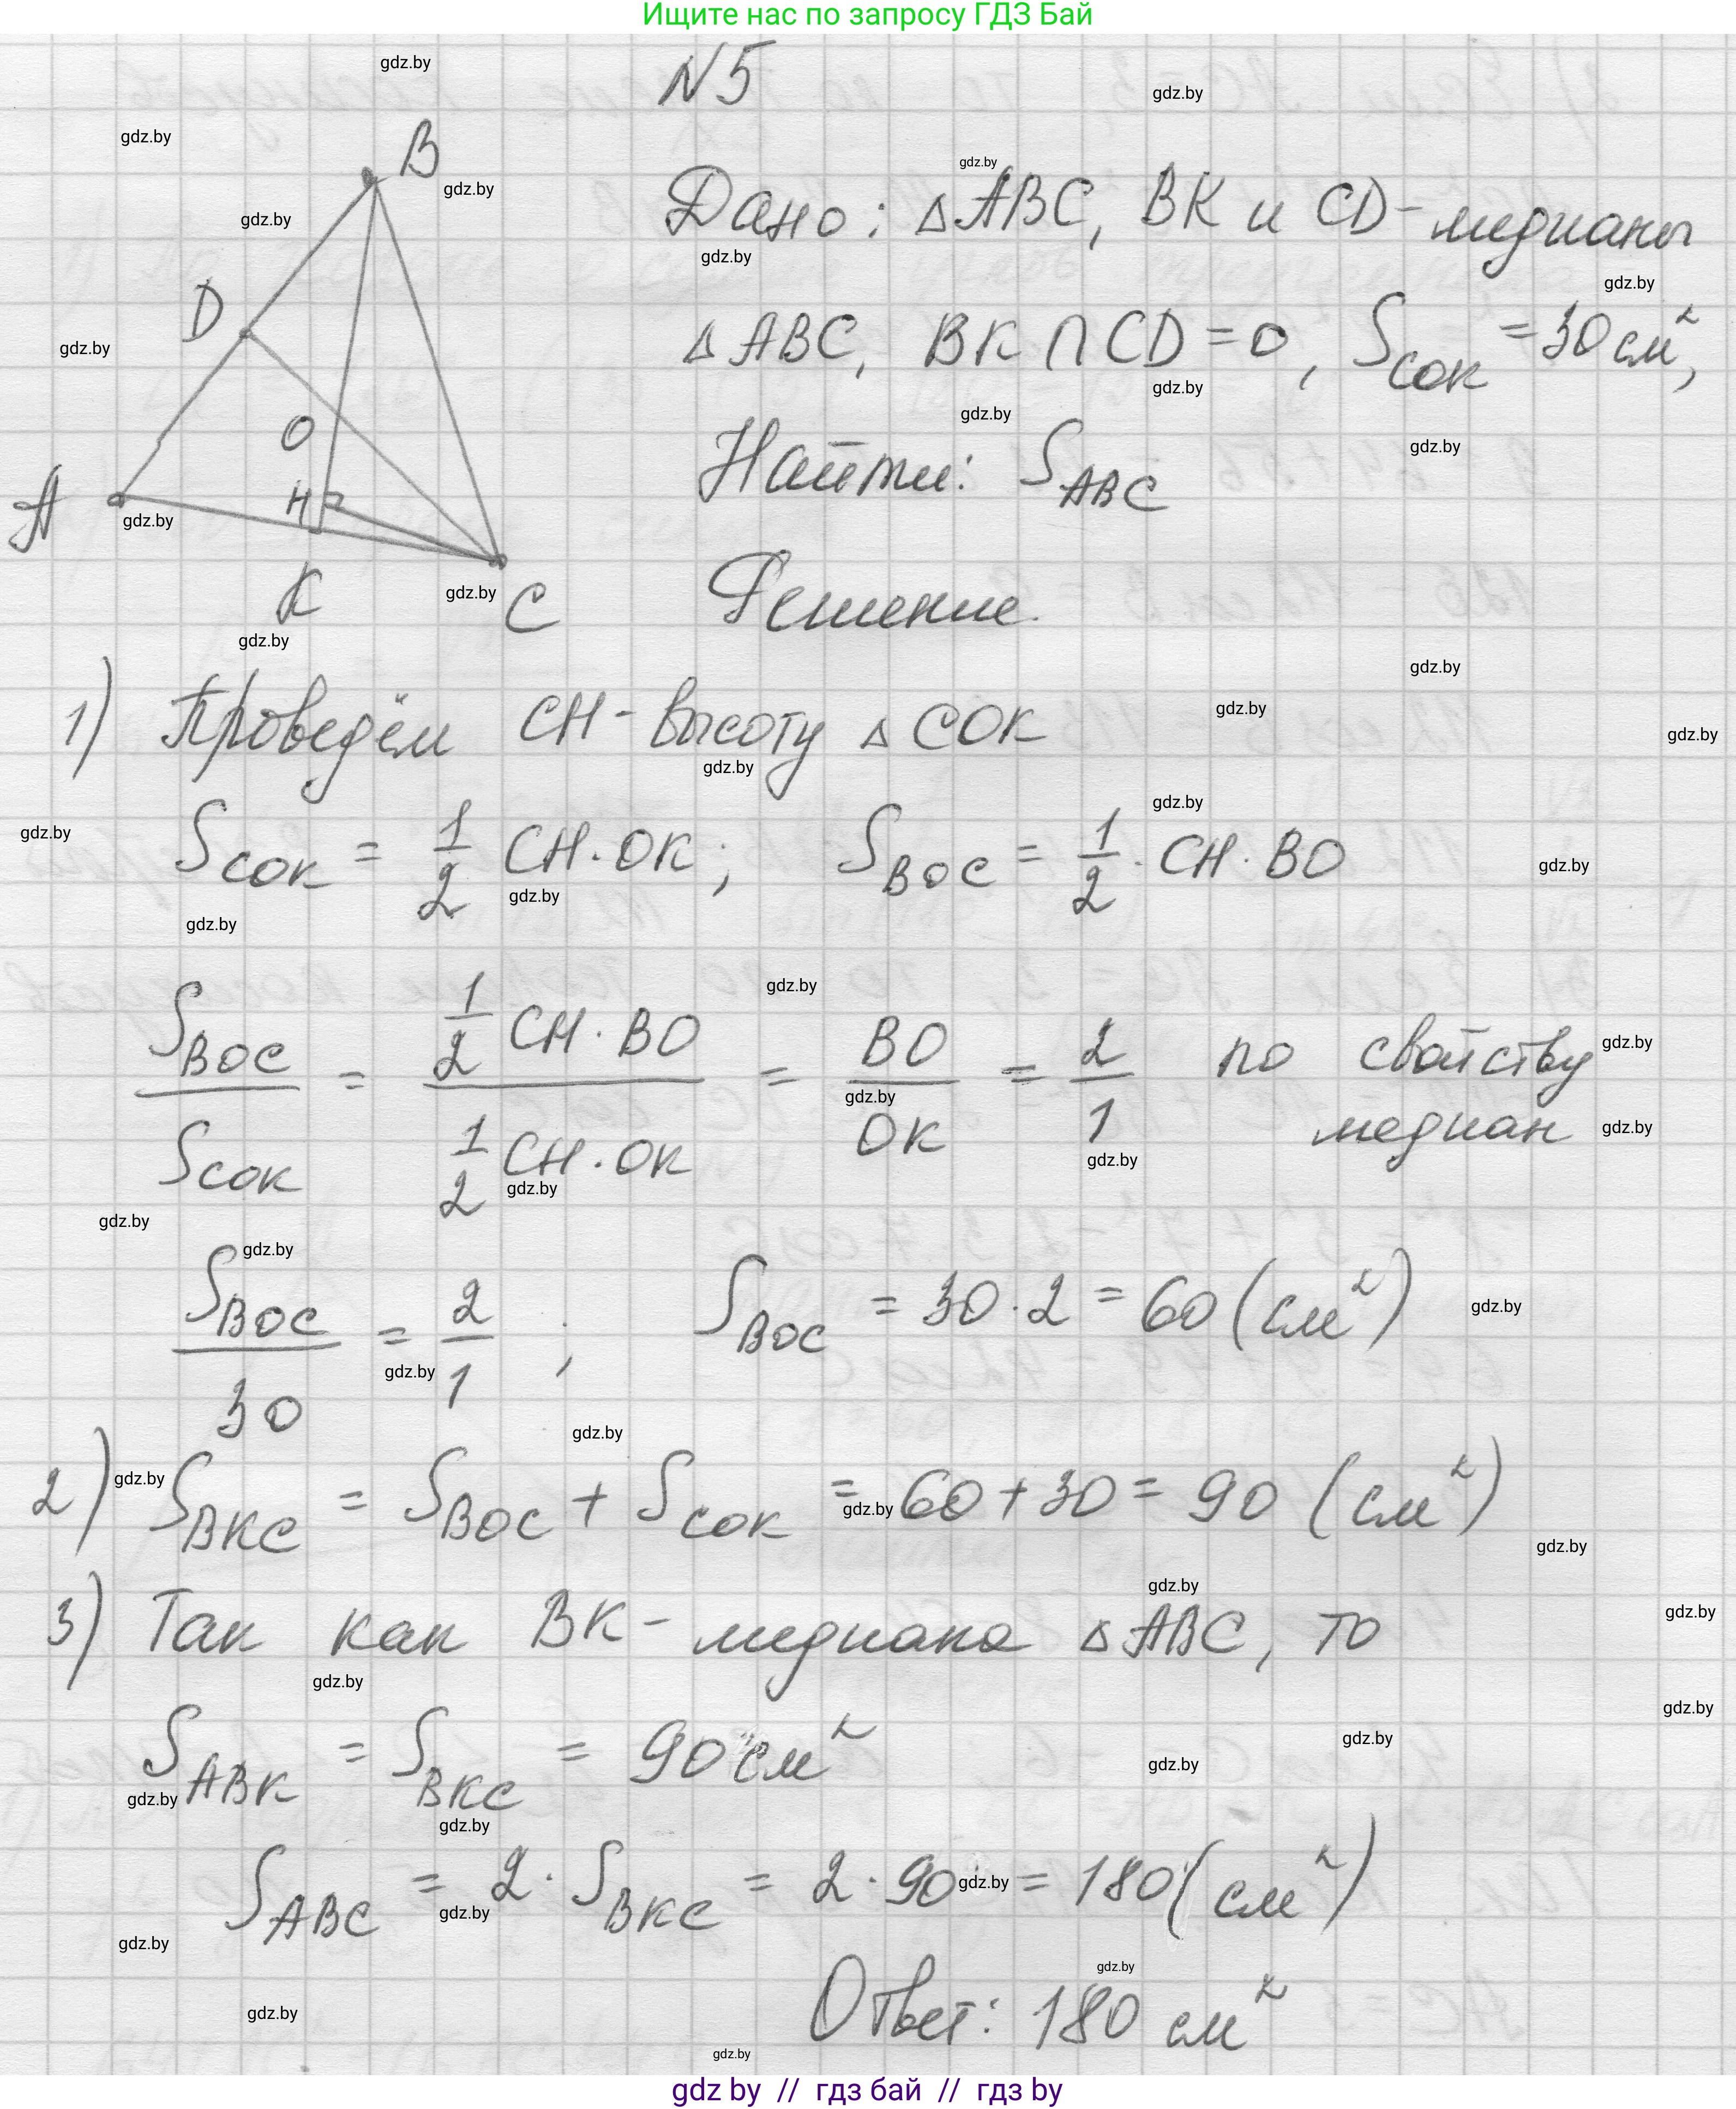 Ищите нас по запросу ГДЗ Бай
N5
Дано: △ABC, BK и CD-медианы
△ABC, BK ∩ CD = O, S_COK = 30 см²,
Найти: S_ABC
B
D
O
H
A
K
C
Решение.
1) Проведём CH - высоту △ COK
S_COK = 1/2 CH · OK; S_BOC = 1/2 · CH · BO
S_BOC / S_COK = (1/2 CH · BO) / (1/2 CH · OK) = BO / OK = 2/1 по свойству
медиан
S_BOC / 30 = 2/1; S_BOC = 30 · 2 = 60 (см²)
2) S_BKC = S_BOC + S_COK = 60 + 30 = 90 (см²)
3) Так как BK - медиана △ABC, то
S_ABK = S_BKC = 90 см²
S_ABC = 2 · S_BKC = 2 · 90 = 180 (см²)
Ответ: 180 см²
gdz by // гдз бай // гдз by